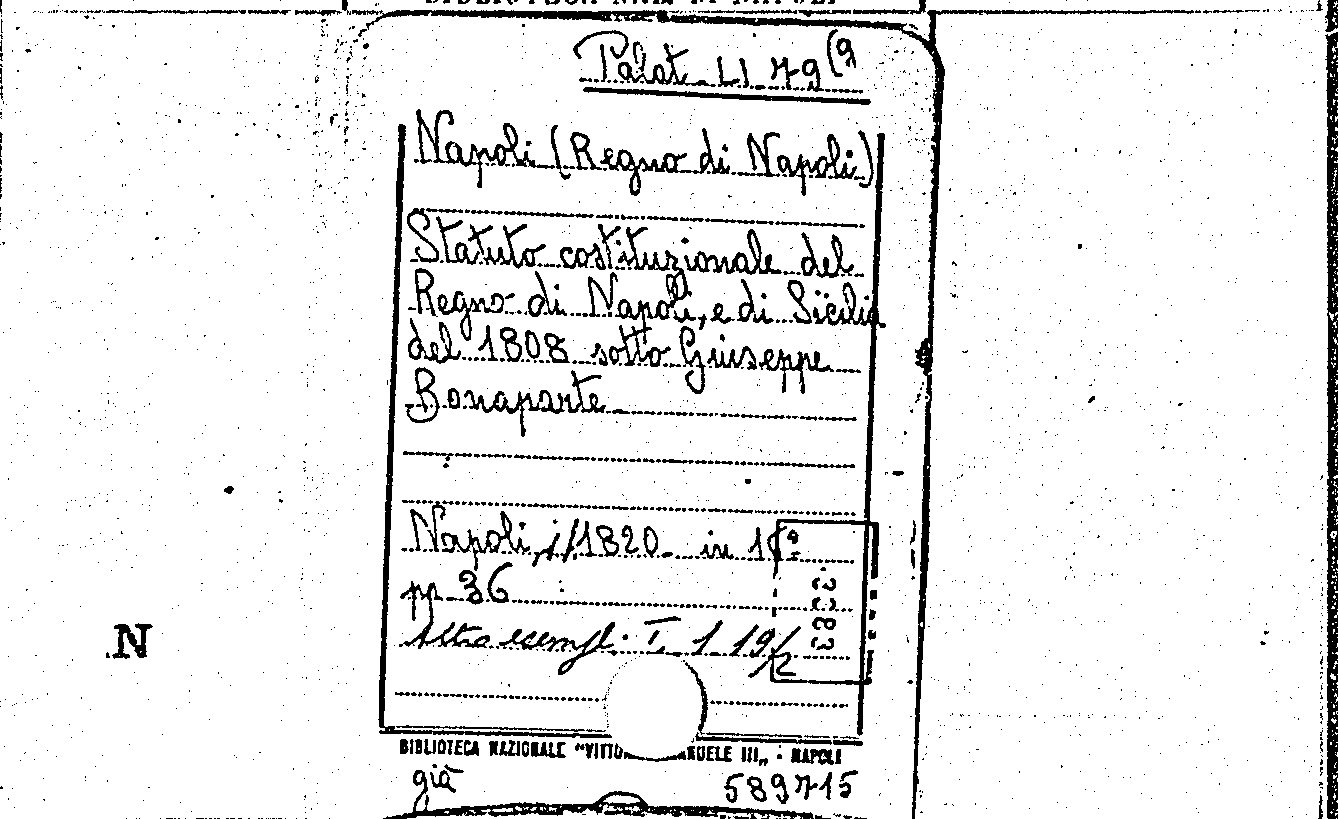 Palat. LI 79 (9
Napoli (Regno di Napoli)
Statuto costituzionale del
Regno di Napoli, e di Sicilia
del 1808 sotto Giuseppe
Bonaparte
Napoli, 1820 in
pp. 36
Altro esempl. T. 1. 19/2
N
BIBLIOTECA NAZIONALE "VITTO ANUELE III„ - NAPOLI
già 589715